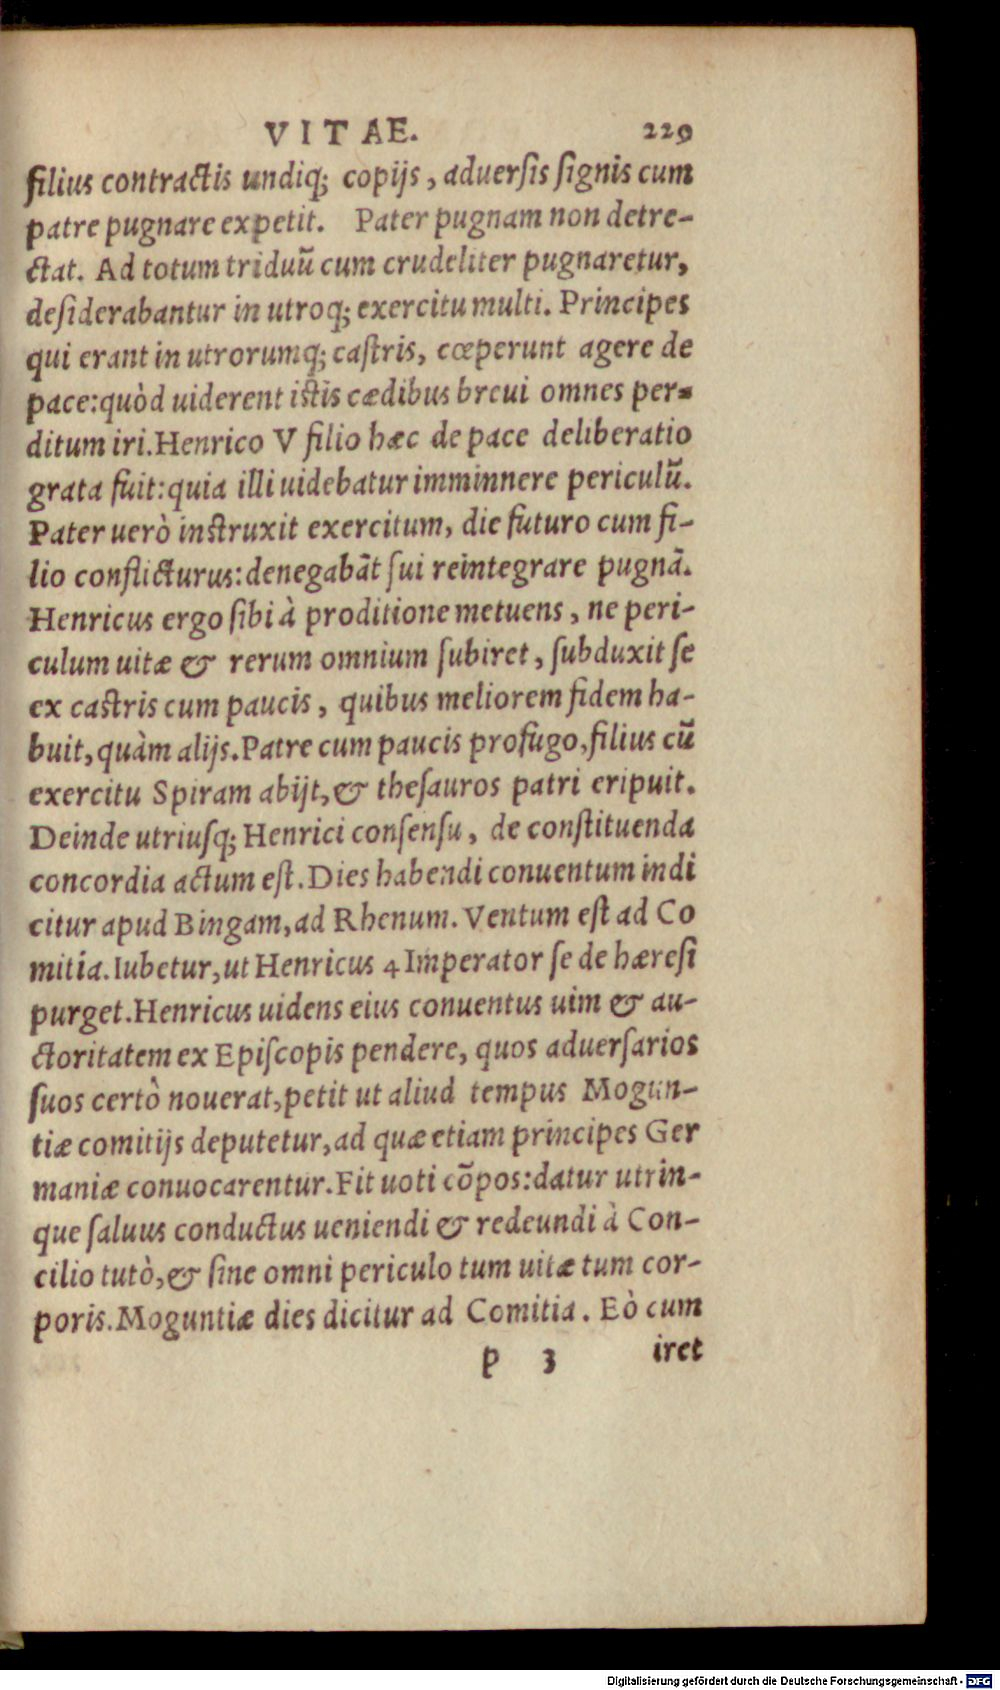 VITAE. 229
filius contractis undiq; copijs, aduersis signis cum
patre pugnare expetit. Pater pugnam non detre-
ctat. Ad totum triduũ cum crudeliter pugnaretur,
desiderabantur in utroq; exercitu multi. Principes
qui erant in utrorumq; castris, cœperunt agere de
pace:quòd uiderent istis cædibus breui omnes per-
ditum iri. Henrico V filio hæc de pace deliberatio
grata fuit:quia illi uidebatur imminnere periculũ.
Pater uerò instruxit exercitum, die futuro cum fi-
lio conflicturus:denegabãt sui reintegrare pugnã.
Henricus ergo sibi à proditione metuens, ne peri-
culum uitæ & rerum omnium subiret, subduxit se
ex castris cum paucis, quibus meliorem fidem ha-
buit, quàm alijs. Patre cum paucis profugo, filius cũ
exercitu Spiram abijt, & thesauros patri eripuit.
Deinde utriusq; Henrici consensu, de constituenda
concordia actum est. Dies habendi conuentum indi
citur apud Bingam, ad Rhenum. Ventum est ad Co
mitia. Iubetur, ut Henricus 4 Imperator se de hæresi
purget. Henricus uidens eius conuentus uim & au-
ctoritatem ex Episcopis pendere, quos aduersarios
suos certò nouerat, petit ut aliud tempus Mogun-
tiæ comitijs deputetur, ad quæ etiam principes Ger
maniæ conuocarentur. Fit uoti cõpos:datur utrin-
que saluus conductus ueniendi & redeundi à Con-
cilio tutò, & sine omni periculo tum uitæ tum cor-
poris. Moguntiæ dies dicitur ad Comitia. Eò cum
p 3 iret
Digitalisierung gefördert durch die Deutsche Forschungsgemeinschaft - DFG